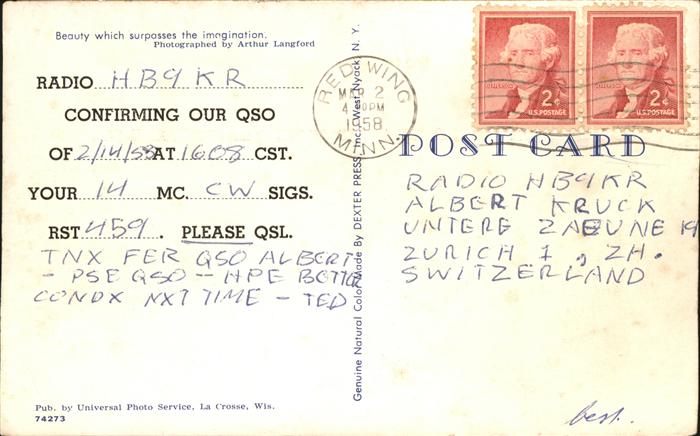 Beauty which surpasses the imagination.
Photographed by Arthur Langford
RADIO HB9KR
CONFIRMING OUR QSO
OF 2/14/58 AT 1608 CST.
YOUR 14 MC. CW SIGS.
RST 459. PLEASE QSL.
TNX FER QSO ALBERT
- PSE QSO - HPE BETTER
CONDX NXT TIME - TED
Pub. by Universal Photo Service, La Crosse, Wis.
74273
Genuine Natural Color Made by DEXTER PRESS, Inc., West Nyack, N. Y.
RED WING
MAR 2
PM
1958
MINN.
JEFFERSON
2¢
U.S. POSTAGE
JEFFERSON
2¢
U.S. POSTAGE
POST CARD
RADIO HB9KR
ALBERT KRUCK
UNTERE ZAEUNE 19
ZURICH 1, ZH.
SWITZERLAND
best.